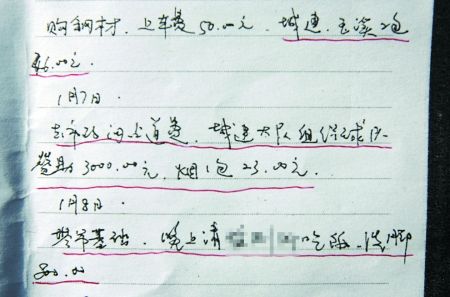 购钢材，上车费50.00元，城建，玉溪2包
46.00元.
1月7日.
去市政闯过道费，城建大队组织球队
赞助3000.00元，烟1包23.00元.
1月8日
整吊基础，晚上请 吃饭、洗脚
800.00